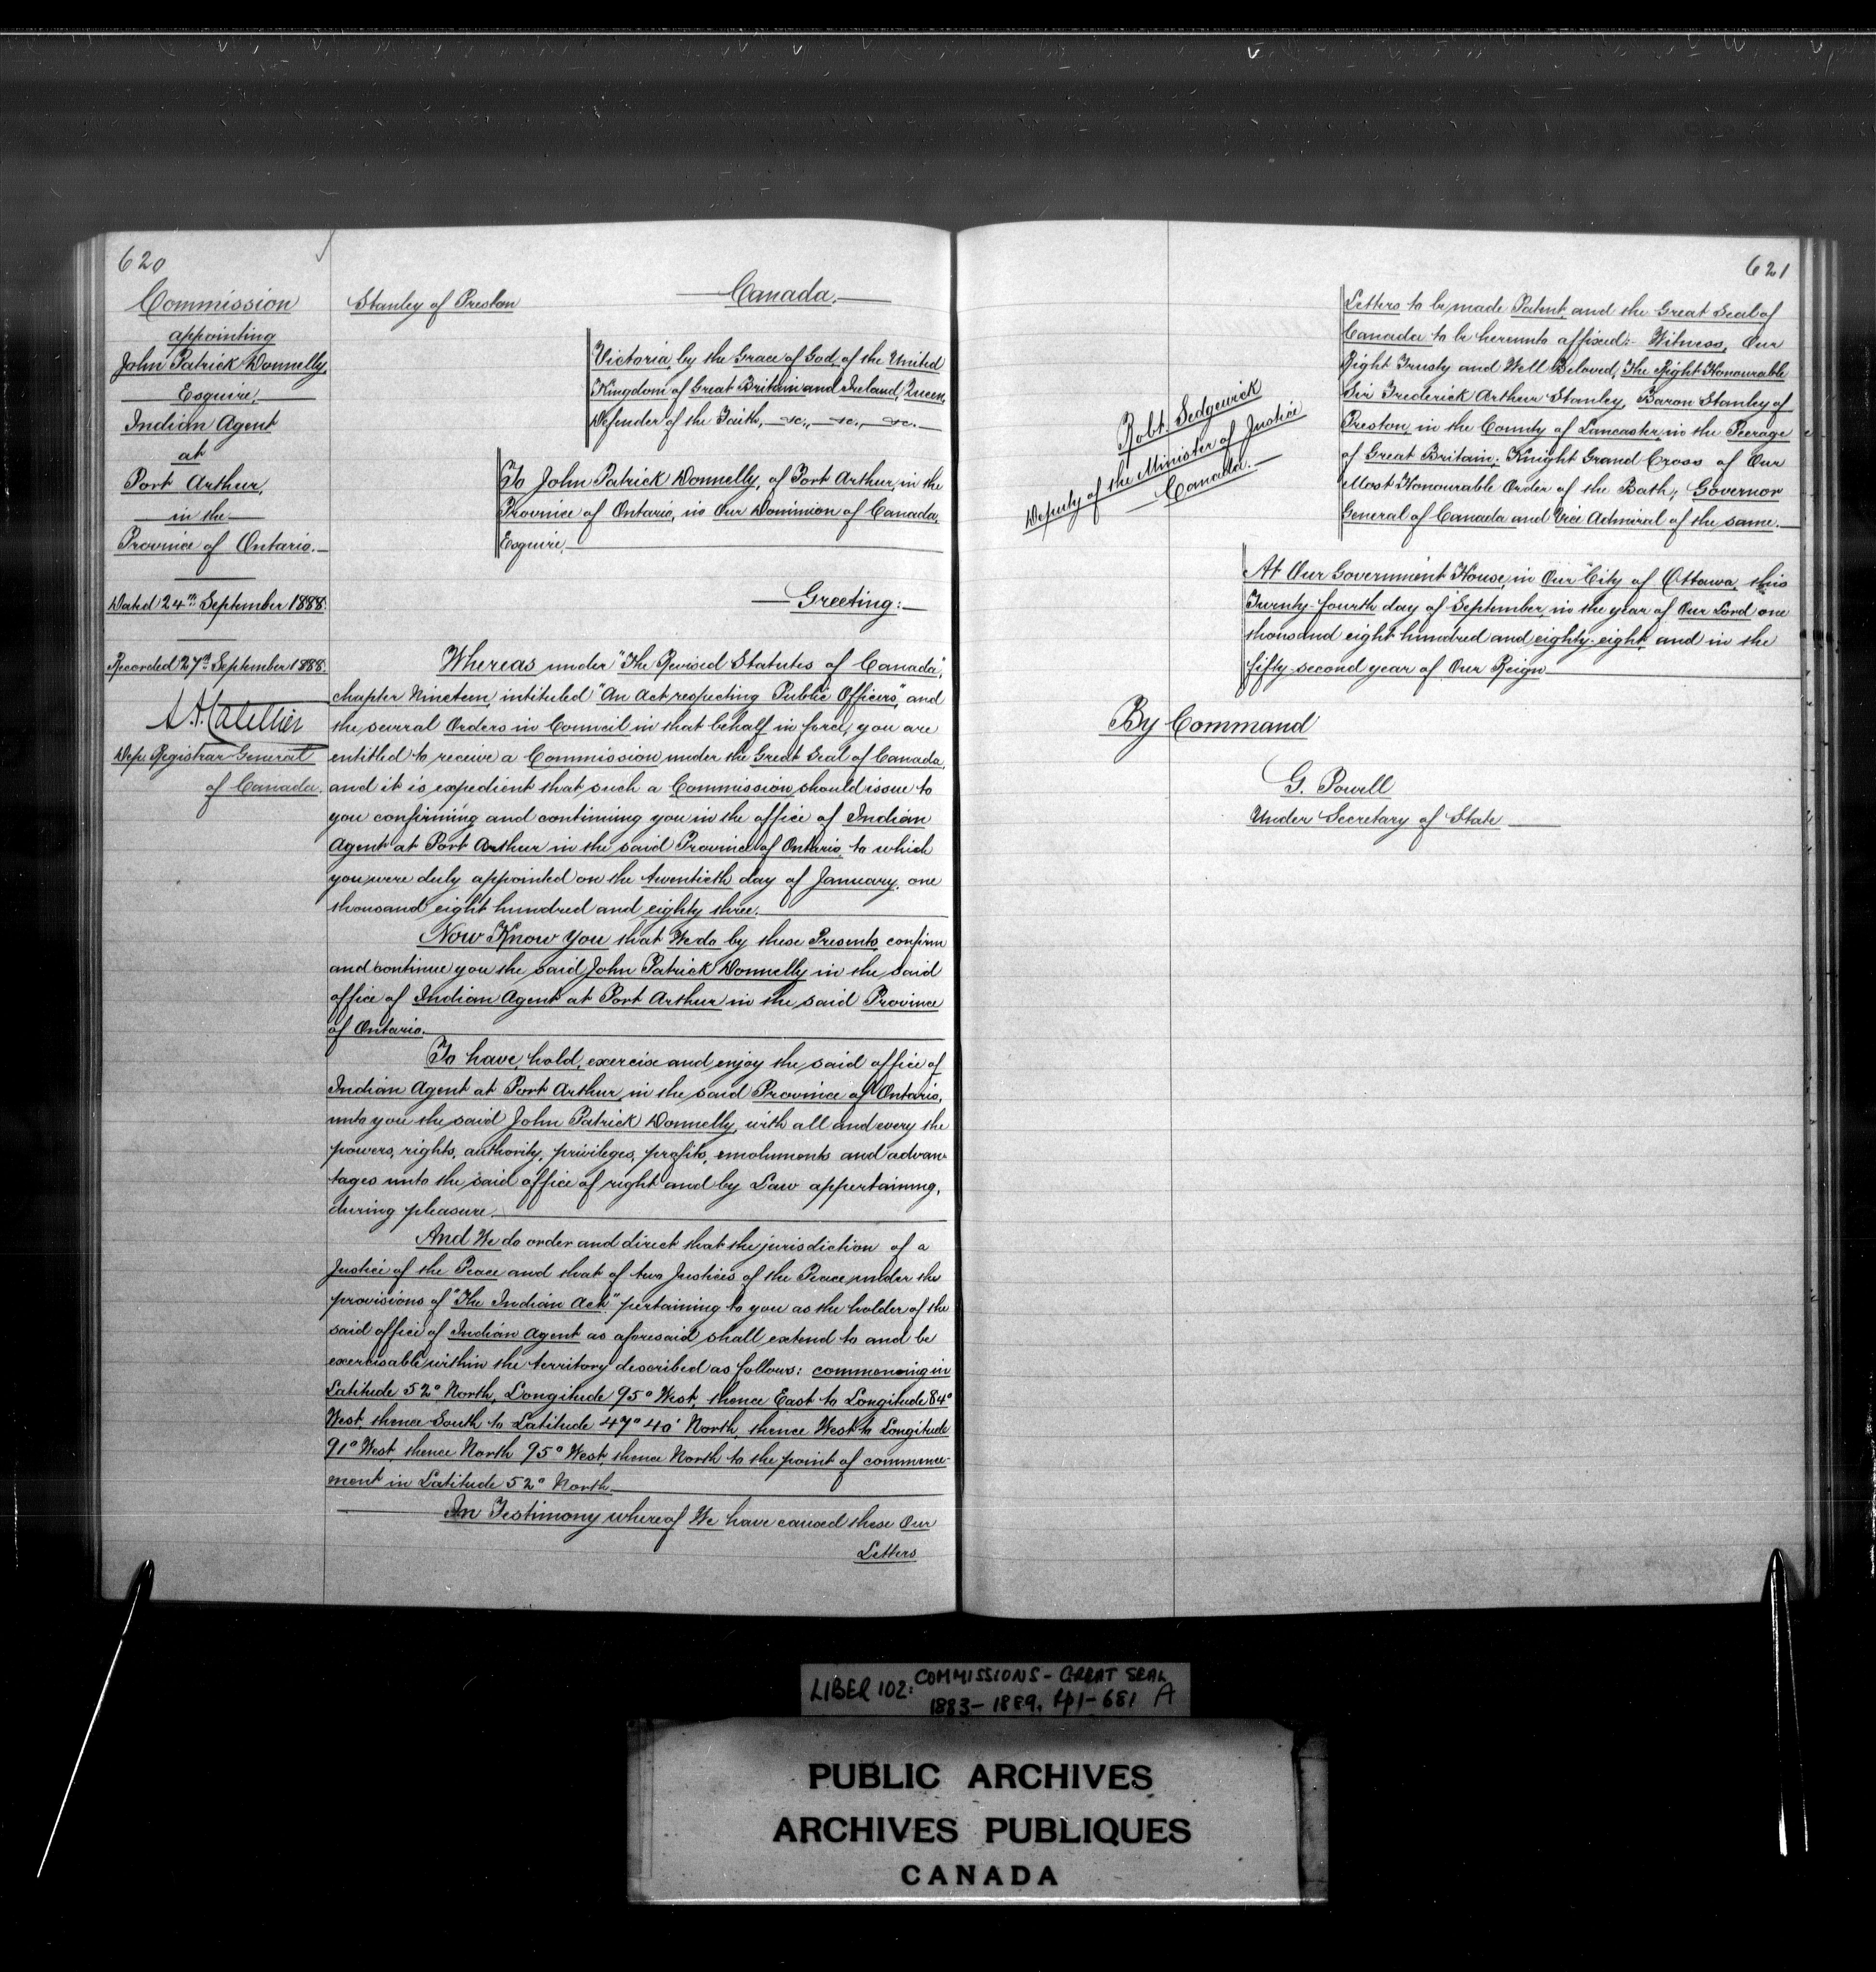 620
Commission
appointing
John Patrick Donnelly,
Esquire,
Indian Agent
at
Port Arthur,
in the
Province of Ontario.
Dated 24th September 1888.
Recorded 27th September 1888.
Dep. Registrar General
of Canada.
Stanley of Preston
Canada.
Victoria, by the Grace of God, of the United
Kingdom of Great Britain and Ireland, Queen,
Defender of the Faith, &c., &c., &c.
To John Patrick Donnelly, of Port Arthur, in the
Province of Ontario, in Our Dominion of Canada,
Esquire,
Greeting:
Whereas under "The Revised Statutes of Canada",
chapter Nineteen, intituled "An Act respecting Public Officers", and
the several Orders in Council in that behalf in force, you are
entitled to receive a Commission under the Great Seal of Canada,
and it is expedient that such a Commission should issue to
you confirming and continuing you in the office of Indian
Agent at Port Arthur in the said Province of Ontario, to which
you were duly appointed on the twentieth day of January, one
thousand eight hundred and eighty three.
Now Know You that We do by these Presents confirm
and continue you the said John Patrick Donnelly in the said
office of Indian Agent at Port Arthur in the said Province
of Ontario.
To have, hold, exercise and enjoy the said office of
Indian Agent at Port Arthur, in the said Province of Ontario,
unto you the said John Patrick Donnelly, with all and every the
powers, rights, authority, privileges, profits, emoluments and advan-
tages unto the said office of right and by Law appertaining,
during pleasure.
And We do order and direct that the jurisdiction of a
Justice of the Peace and that of two Justices of the Peace under the
provisions of "The Indian Act" pertaining to you as the holder of the
said office of Indian Agent as aforesaid shall extend to and be
exercisable within the territory described as follows: commencing in
Latitude 52° North, Longitude 95° West, thence East to Longitude 84°
West, thence South to Latitude 47° 40' North, thence West to Longitude
91° West, thence North 95° West, thence North to the point of commence-
ment in Latitude 52° North.
In Testimony whereof We have caused these Our
Letters
621
Letters to be made Patent, and the Great Seal of
Canada to be hereunto affixed:- Witness, Our
Right Trusty and Well Beloved, The Right Honourable
Sir Frederick Arthur Stanley, Baron Stanley of
Preston, in the County of Lancaster, in the Peerage
of Great Britain; Knight Grand Cross of Our
Most Honourable Order of the Bath; Governor
General of Canada and Vice Admiral of the same.
Robt. Sedgewick
Deputy of the Minister of Justice
Canada.
At Our Government House, in Our City of Ottawa, this
Twenty-fourth day of September, in the year of Our Lord one
thousand eight hundred and eighty-eight and in the
fifty second year of Our Reign
By Command
G. Powell
Under Secretary of State
LIBER 102: COMMISSIONS - GREAT SEAL
1883-1889, pp1-681 A
PUBLIC ARCHIVES
ARCHIVES PUBLIQUES
CANADA